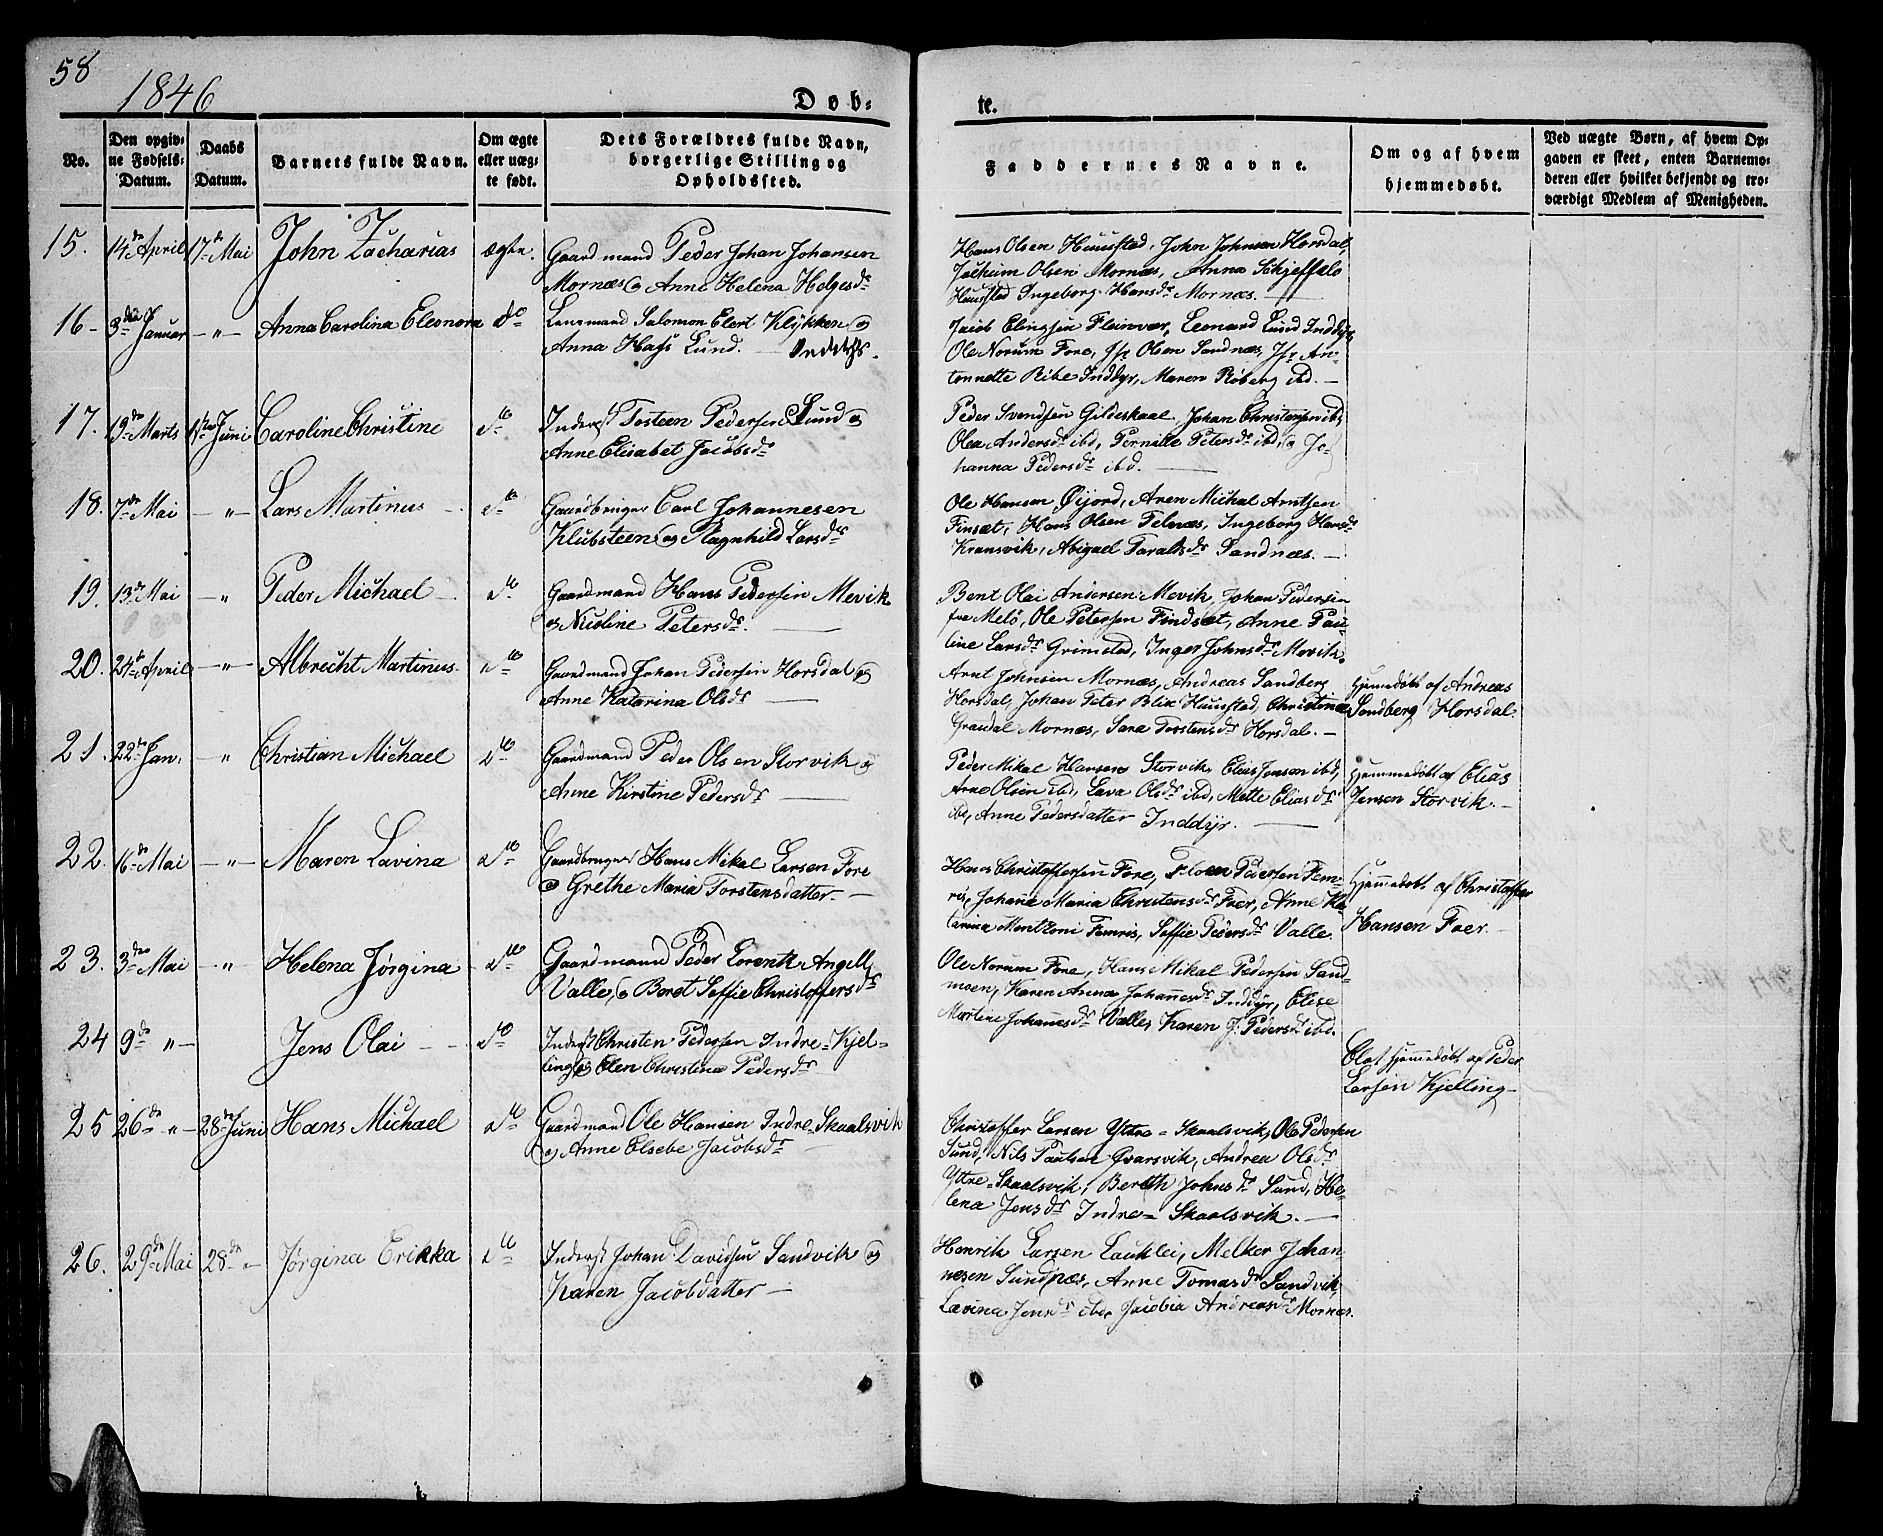 58
1846
Døb-
te.
No.
Den opgiv-
ne Fødsels-
Datum.
Daabs
Datum.
Barnets fulde Navn.
Om ægte
eller uæg-
te født.
Dets Forældres fulde Navn,
borgerlige Stilling og
Opholdssted.
Faddernes Navne.
Om og af hvem
hjemmedøbt.
Ved uægte Børn, af hvem Op-
gaven er skeet, enten Barnemo-
deren eller hvilket bekjendt og tro-
værdigt Medlem af Menigheden.
15. 14de April 17de Mai John Zacharias ægte. Gaardmand Peder Johan Johansen
Mornæs og Anne Helena Helgesdr
Hans Olsen Huustad, John Johnsen Horsdal,
Olsen Mornæs, Anna Schjeffalo
Huustad Ingeborg Hansdr Mornæs. —
16 - 3de Januar — „ — Anna Carolina Eleonora do Lensmand Salomon Elert Klykken og
Anna Hass Lund. —
Jacob Elingsen Fleinvær, Leonard Lund Inddyr,
Ole Norum Fore, Jfr Olsen Sandnæs, Jfr An-
tonnette Ribe Inddyr, Maren Røberg ibd. —
17. 19de Marts 1ste Juni Caroline Christine do Inderst Tosteen Pedersen Lund og
Anne Elisabet Jacobsdr
Peder Svendsen Gildeskaal, Johan Christensen ibd,
Olea Andersdr ibd, Pernille Petersdr ibd, og Jo-
hanna Pedersdr ibd. —
18. 7de Mai — „ — Lars Martinus - do Gaardbruger Carl Johannesen
Klubsteen og Ragnhild Larsdr
Ole Hansen Øijord, Aren Michal Arntsen
Finsæt, Hans Olsen Telnæs, Ingeborg Hansdr
Kransvik, Abigael Taraldsdr Sandnæs. —
19. 13de Mai — „ Peder Michael - do Gaardmand Hans Pedersen Mevik
og Nicoline Petersdr. —
Bent Olai Andersen Mevik, Johan Pedersen
fra Melø, Ole Petersen Findsæt, Anne Pau-
line Larsdr Grimstad, Inger Johnsdr Mevik.
20. 24de April — „ Albrecht Martinus do Gaardmand Johan Pedersen Horsdal og
Anne Katarina Olsdr —
Arnt Johnsen Mornæs, Andreas Sandberg
Horsdal, Johan Peter Blix Huustad, Christina
Grandal Mornæs, Sara Torstensdr Horsdal. —
Hjemmedøbt af Andreas
Sandberg Horsdal.
21. 22de Jan. — „ Christian Michael do Gaardmand Peder Olsen Storvik og
Anne Kirstine Pedersdr —
Peder Mikal Hansen Storvik, Elias Jensen ibd,
Arne Olsen ibd, Lava Olsdr ibd, Mette Eliasdr
ibd, Anne Pedersdatter Inddyr. —
Hjemmedøbt af Elias
Jensen Storvik. —
22. 16de Mai — „ — Maren Lavina do Gaardbruger Hans Mikal Larsen Fore
og Grethe Maria Torstensdatter. —
Hans Christoffersen Fore, Pedersen Fem-
ris, Johanna Maria Christensdr Foer, Anne Ka-
tarina Montzoni Femris, Soffie Pedersdr Valle.
Hjemmedøbt af Christoffer
Hansen Foer. —
23. 3die Mai — „ Helena Jørgina do Gaardmand Peder Lorentz Angell
Valle, og Beret Soffie Christoffersdr
Ole Norum Fore, Hans Mikal Pedersen Sand-
moen, Karen Anna Johannesdr Inddyr, Elise
Martine Johannesdr Valle, Karen J. Pedersdr ibd.
24 9de „ — Jens Olai — - do Inderst Christen Pedersen Indre-Kjel-
ling og Elen Christina Pedersdr
hjemmedøbt af Peder
Larsen Kjelling —
25 26de „ — 28de Juni Hans Michael do Gaardmand Ole Hansen Indre-Skaalsvik
og Anne Elsebe Jacobsdr
Christoffer Larsen Yttre-Skaalsvik, Ole Pedersen
Sund, Nils Paulsen Qvarsvik, Andrea Olsdr
Yttre-Skaalsvik, Bereth Johnsdr Sund, He-
lena Jensdr Indre-Skaalsvik. —
26. 29de Mai 28de „ Jørgina Erikka do Inderst Johan Davidsen Sandvik og
Karen Jacobdatter —
Henrik Larsen Lauklei, Melker Johan-
nesen Sundnæs, Anne Tomasdr Sandvik,
Lavina Jensdr ibd, Jacobia Andreasdr Mornæs.